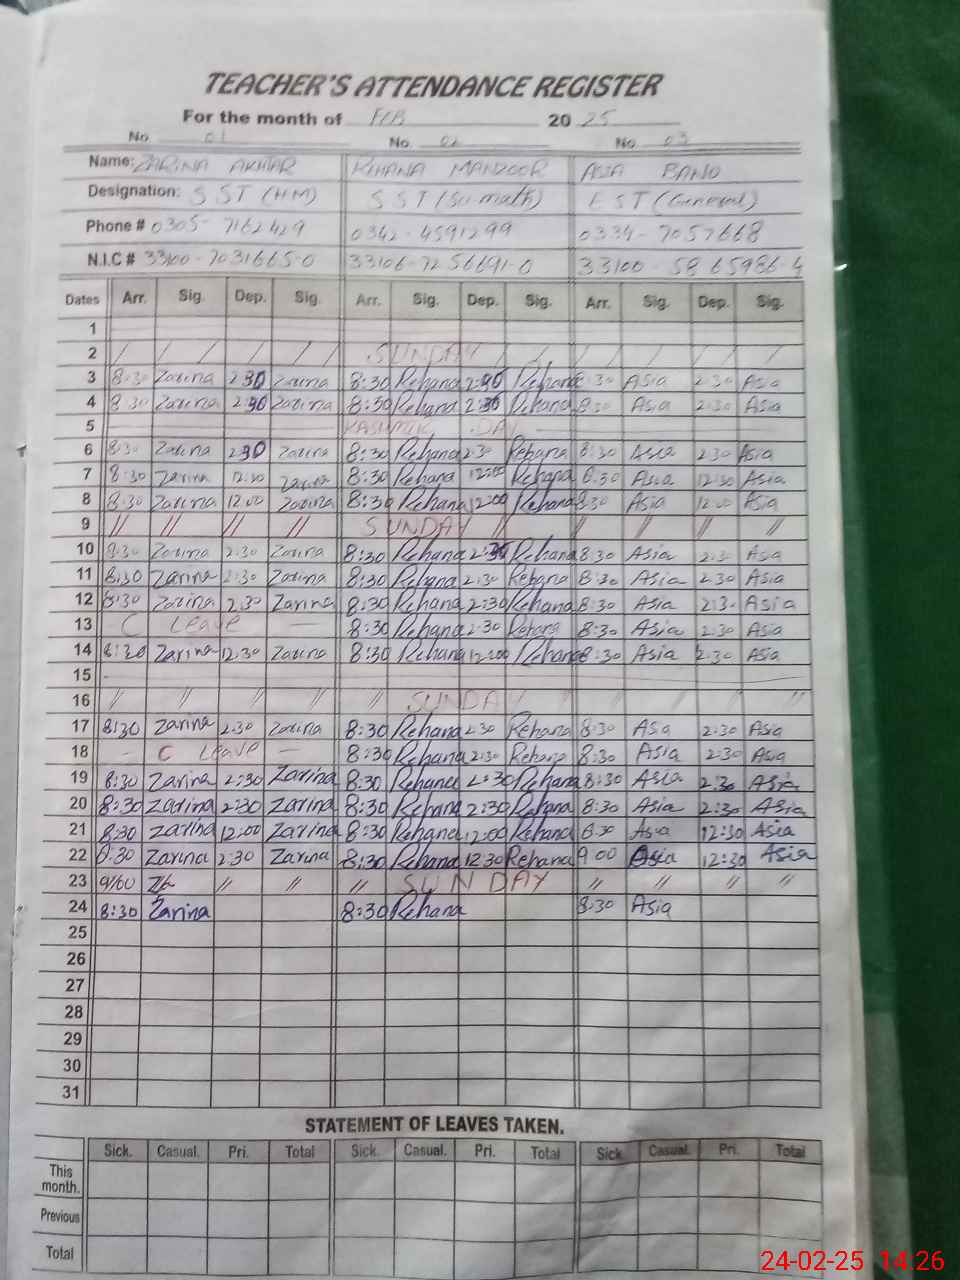 TEACHER'S ATTENDANCE REGISTER
For the month of FEB 20 25
No. 01 No. 02 No. 03
Name: ZARINA AKHTAR REHANA MANZOOR ASIA BANO
Designation: S ST (HM) S ST (Sci-math) EST (General)
Phone # 0305-7162429 0342-4591299 0334-7057668
N.I.C # 33100-7031665-0 33106-7256691-0 33100-5865986-4
Dates Arr. Sig. Dep. Sig. Arr. Sig. Dep. Sig. Arr. Sig. Dep. Sig.
1
2 / / / / / SUNDAY / / / / / /
3 8:30 Zarina 2:30 Zarina 8:30 Rehana 2:30 Rehana 8:30 Asia 2:30 Asia
4 8:30 Zarina 2:30 Zarina 8:30 Rehana 2:30 Rehana 8:30 Asia 2:30 Asia
5 KASHMIR DAY
6 8:30 Zarina 2:30 Zarina 8:30 Rehana 2:30 Rehana 8:30 Asia 2:30 Asia
7 8:30 Zarina 12:30 Zarina 8:30 Rehana 12:00 Rehana 8:30 Asia 12:30 Asia
8 8:30 Zarina 12:00 Zarina 8:30 Rehana 12:00 Rehana 8:30 Asia 12:00 Asia
9 // // // // SUNDAY // // // // // //
10 8:30 Zarina 2:30 Zarina 8:30 Rehana 2:30 Rehana 8:30 Asia 2:30 Asia
11 8:30 Zarina 2:30 Zarina 8:30 Rehana 2:30 Rehana 8:30 Asia 2:30 Asia
12 8:30 Zarina 2:30 Zarina 8:30 Rehana 2:30 Rehana 8:30 Asia 2:30 Asia
13 C Leave — 8:30 Rehana 2:30 Rehana 8:30 Asia 2:30 Asia
14 8:30 Zarina 12:30 Zarina 8:30 Rehana 12:00 Rehana 8:30 Asia 2:30 Asia
15
16 // // // // // SUNDAY // // // // //
17 8:30 Zarina 2:30 Zarina 8:30 Rehana 2:30 Rehana 8:30 Asia 2:30 Asia
18 - C Leave — 8:30 Rehana 2:30 Rehana 8:30 Asia 2:30 Asia
19 8:30 Zarina 2:30 Zarina 8:30 Rehana 2:30 Rehana 8:30 Asia 2:30 Asia
20 8:30 Zarina 2:30 Zarina 8:30 Rehana 2:30 Rehana 8:30 Asia 2:30 Asia
21 8:30 Zarina 12:00 Zarina 8:30 Rehana 12:00 Rehana 8:30 Asia 12:30 Asia
22 8:30 Zarina 2:30 Zarina 8:30 Rehana 12:30 Rehana 9:00 Asia 12:30 Asia
23 // // // SUNDAY // // // //
24 8:30 Zarina 8:30 Rehana 8:30 Asia
25
26
27
28
29
30
31
STATEMENT OF LEAVES TAKEN.
Sick. Casual. Pri. Total Sick. Casual. Pri. Total Sick. Casual. Pri. Total
This month.
Previous
Total
24-02-25 14:26